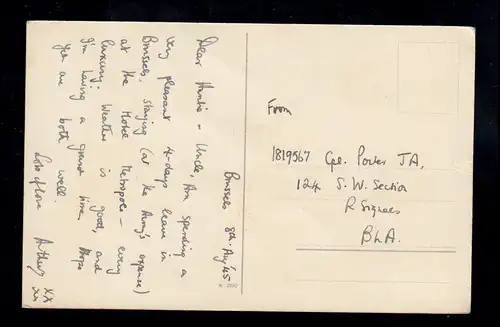 Brussels 8th Aug '45
Dear Auntie & Uncle, Am spending a
very pleasant 4-days leave in
Brussels. Staying (at the Army's expense)
at the Hotel Metropole - every
luxury! Weather is good, and
I'm having a grand time. Hope
you are both well.
Lots of love
Arthur
XX
XX
From
1819567 Cpl. Porter JA,
124 S.W. Section
R Signals
BLA.